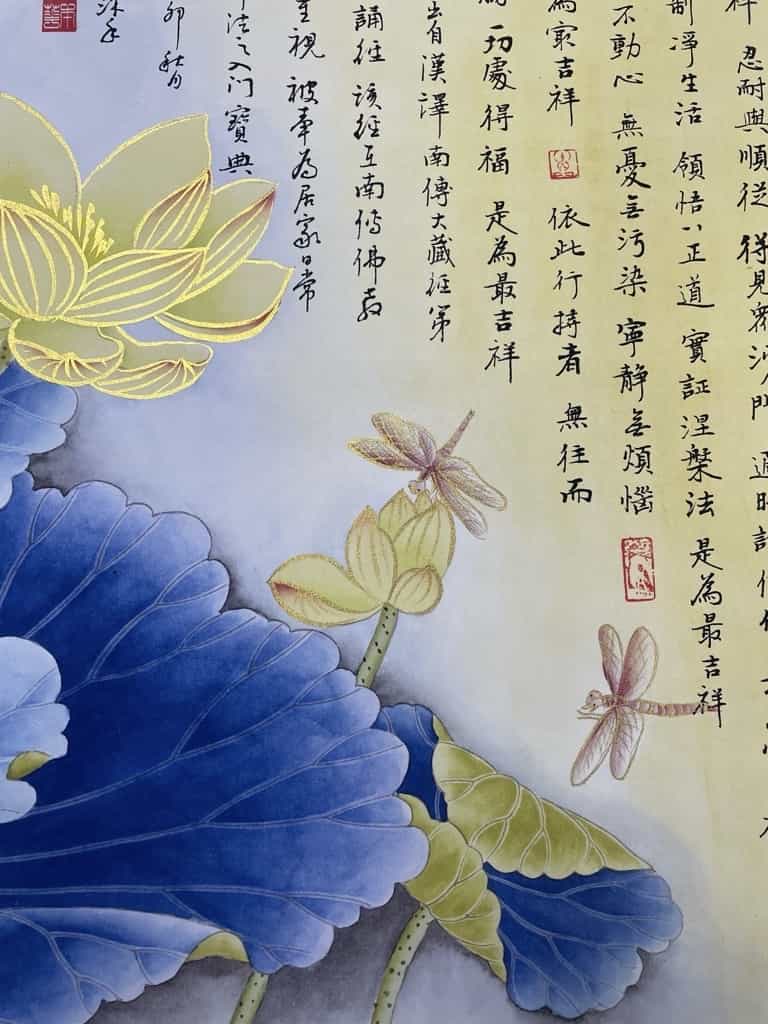 祥 忍耐與順從 得見眾沙門 適時
制淨生活 領悟八正道 實証涅槃法 是為最吉祥
不動心 無憂無污染 寧靜無煩惱
為冣吉祥 依此行持者 無往而
一切處得福 是為最吉祥
出自漢譯南傳大藏經第
誦經 該經在南傳佛教
重視 被奉為居家日常
法之入门寶典
卯 秋月
沐手